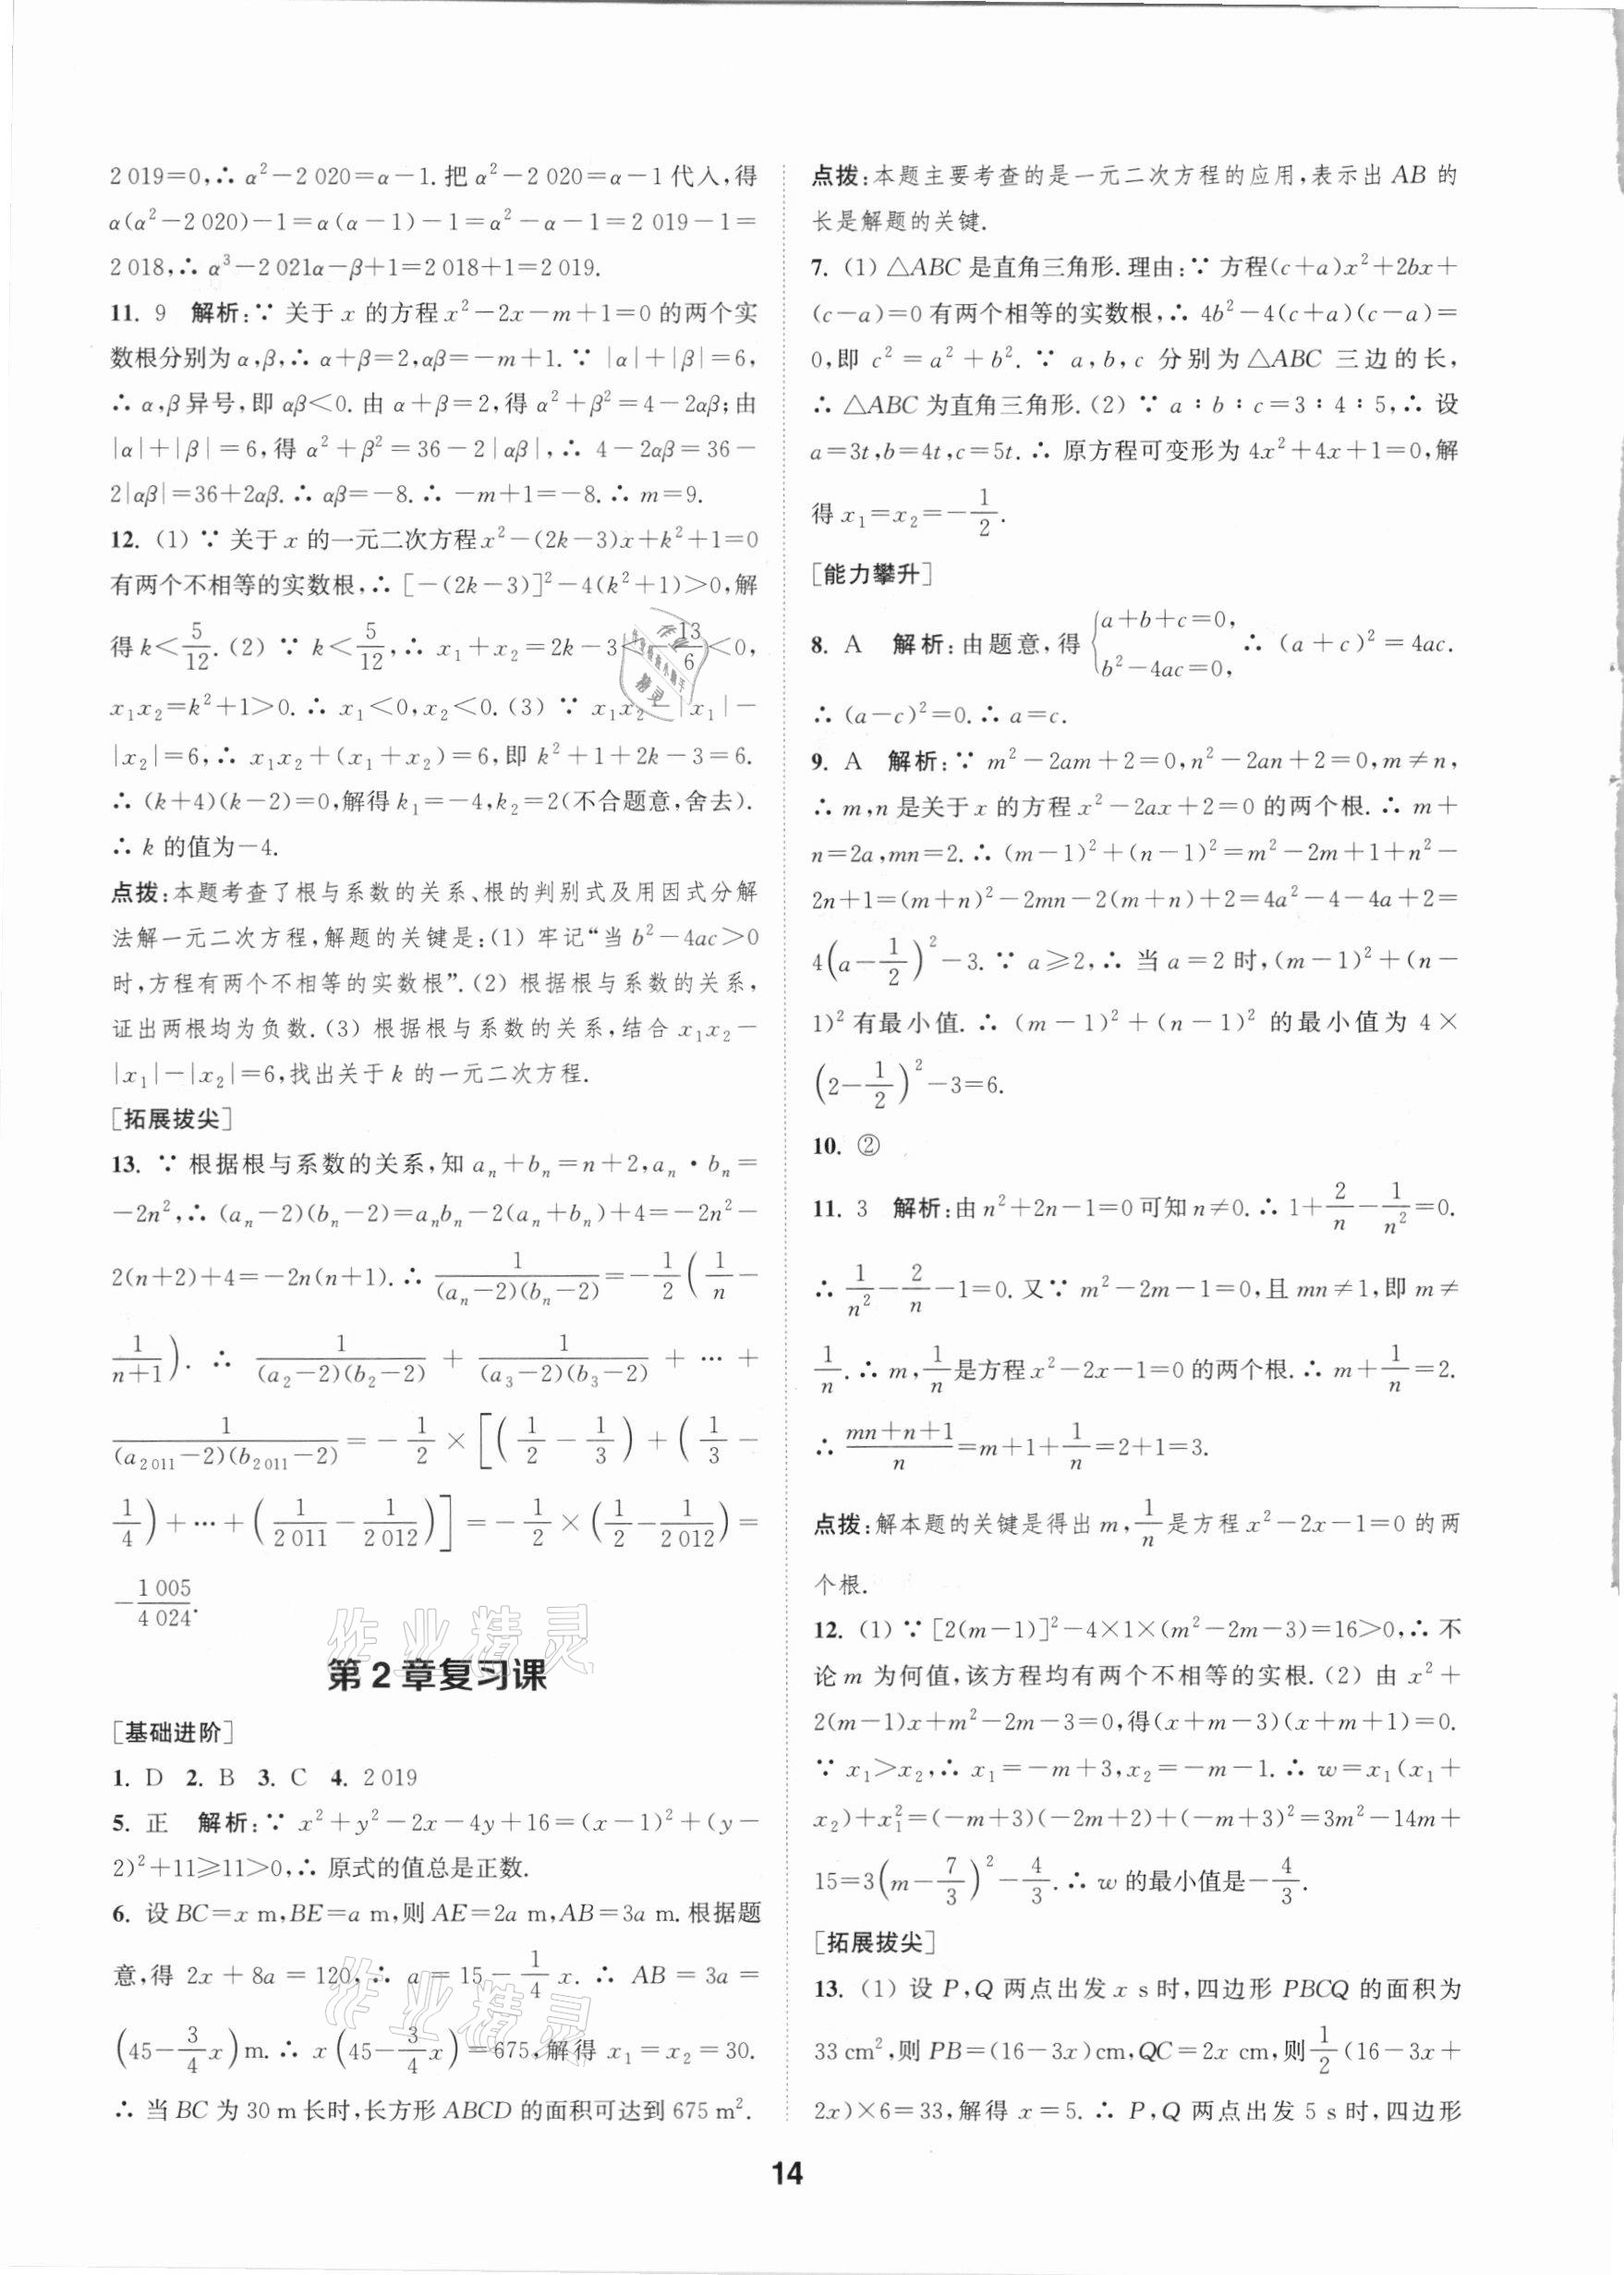 2 019=0,∴ α²-2 020=α-1. 把 α²-2 020=α-1 代入,得
α(α²-2 020)-1=α(α-1)-1=α²-α-1=2 019-1=
2 018,∴ α³-2 021α-β+1=2 018+1=2 019.
11. 9 解析:∵ 关于 x 的方程 x²-2x-m+1=0 的两个实
数根分别为 α,β,∴ α+β=2,αβ=-m+1. ∵ |α|+|β|=6,
∴ α,β 异号,即 αβ<0. 由 α+β=2,得 α²+β²=4-2αβ;由
|α|+|β|=6,得 α²+β²=36-2|αβ|,∴ 4-2αβ=36-
2|αβ|=36+2αβ. ∴ αβ=-8. ∴ -m+1=-8. ∴ m=9.
12. (1) ∵ 关于 x 的一元二次方程 x²-(2k-3)x+k²+1=0
有两个不相等的实数根,∴ [-(2k-3)]²-4(k²+1)>0,解
得 k<5/12. (2) ∵ k<5/12,∴ x₁+x₂=2k-3<-13/6<0,
x₁x₂=k²+1>0. ∴ x₁<0,x₂<0. (3) ∵ x₁x₂-|x₁|-
|x₂|=6,∴ x₁x₂+(x₁+x₂)=6,即 k²+1+2k-3=6.
∴ (k+4)(k-2)=0,解得 k₁=-4,k₂=2(不合题意,舍去).
∴ k 的值为-4.
点拨:本题考查了根与系数的关系、根的判别式及用因式分解
法解一元二次方程,解题的关键是:(1) 牢记“当 b²-4ac>0
时,方程有两个不相等的实数根”. (2) 根据根与系数的关系,
证出两根均为负数. (3) 根据根与系数的关系,结合 x₁x₂-
|x₁|-|x₂|=6,找出关于 k 的一元二次方程.
[拓展拔尖]
13. ∵ 根据根与系数的关系,知 aₙ+bₙ=n+2,aₙ·bₙ=
-2n²,∴ (aₙ-2)(bₙ-2)=aₙbₙ-2(aₙ+bₙ)+4=-2n²-
2(n+2)+4=-2n(n+1). ∴ 1/((aₙ-2)(bₙ-2))=-1/2(1/n-
1/(n+1)). ∴ 1/((a₂-2)(b₂-2))+1/((a₃-2)(b₃-2))+…+
1/((a₂ ₀₁₁-2)(b₂ ₀₁₁-2))=-1/2×[(1/2-1/3)+(1/3-
1/4)+…+(1/2 011-1/2 012)]=-1/2×(1/2-1/2 012)=
-1 005/4 024.
第 2 章复习课
[基础进阶]
1. D 2. B 3. C 4. 2 019
5. 正 解析:∵ x²+y²-2x-4y+16=(x-1)²+(y-
2)²+11≥11>0,∴ 原式的值总是正数.
6. 设 BC=x m,BE=a m,则 AE=2a m,AB=3a m. 根据题
意,得 2x+8a=120,∴ a=15-1/4x. ∴ AB=3a=
(45-3/4x)m. ∴ x(45-3/4x)=675,解得 x₁=x₂=30.
∴ 当 BC 为 30 m 长时,长方形 ABCD 的面积可达到 675 m².
点拨:本题主要考查的是一元二次方程的应用,表示出 AB 的
长是解题的关键.
7. (1) △ABC 是直角三角形. 理由:∵ 方程(c+a)x²+2bx+
(c-a)=0 有两个相等的实数根,∴ 4b²-4(c+a)(c-a)=
0,即 c²=a²+b². ∵ a,b,c 分别为△ABC 三边的长,
∴ △ABC 为直角三角形. (2) ∵ a∶b∶c=3∶4∶5,∴ 设
a=3t,b=4t,c=5t. ∴ 原方程可变形为 4x²+4x+1=0,解
得 x₁=x₂=-1/2.
[能力攀升]
8. A 解析:由题意,得 {a+b+c=0, b²-4ac=0, ∴ (a+c)²=4ac.
∴ (a-c)²=0. ∴ a=c.
9. A 解析:∵ m²-2am+2=0,n²-2an+2=0,m≠n,
∴ m,n 是关于 x 的方程 x²-2ax+2=0 的两个根. ∴ m+
n=2a,mn=2. ∴ (m-1)²+(n-1)²=m²-2m+1+n²-
2n+1=(m+n)²-2mn-2(m+n)+2=4a²-4-4a+2=
4(a-1/2)²-3. ∵ a≥2,∴ 当 a=2 时,(m-1)²+(n-
1)² 有最小值. ∴ (m-1)²+(n-1)² 的最小值为 4×
(2-1/2)²-3=6.
10. ②
11. 3 解析:由 n²+2n-1=0 可知 n≠0. ∴ 1+2/n-1/n²=0.
∴ 1/n²-2/n-1=0. 又∵ m²-2m-1=0,且 mn≠1,即 m≠
1/n. ∴ m,1/n是方程 x²-2x-1=0 的两个根. ∴ m+1/n=2.
∴ (mn+n+1)/n=m+1+1/n=2+1=3.
点拨:解本题的关键是得出 m,1/n是方程 x²-2x-1=0 的两
个根.
12. (1) ∵ [2(m-1)]²-4×1×(m²-2m-3)=16>0,∴ 不
论 m 为何值,该方程均有两个不相等的实根. (2) 由 x²+
2(m-1)x+m²-2m-3=0,得(x+m-3)(x+m+1)=0.
∵ x₁>x₂,∴ x₁=-m+3,x₂=-m-1. ∴ w=x₁(x₁+
x₂)+x₁²=(-m+3)(-2m+2)+(-m+3)²=3m²-14m+
15=3(m-7/3)²-4/3. ∴ w 的最小值是-4/3.
[拓展拔尖]
13. (1) 设 P,Q 两点出发 x s 时,四边形 PBCQ 的面积为
33 cm²,则 PB=(16-3x)cm,QC=2x cm,则1/2(16-3x+
2x)×6=33,解得 x=5. ∴ P,Q 两点出发 5 s 时,四边形
14
作业精灵
作业精灵